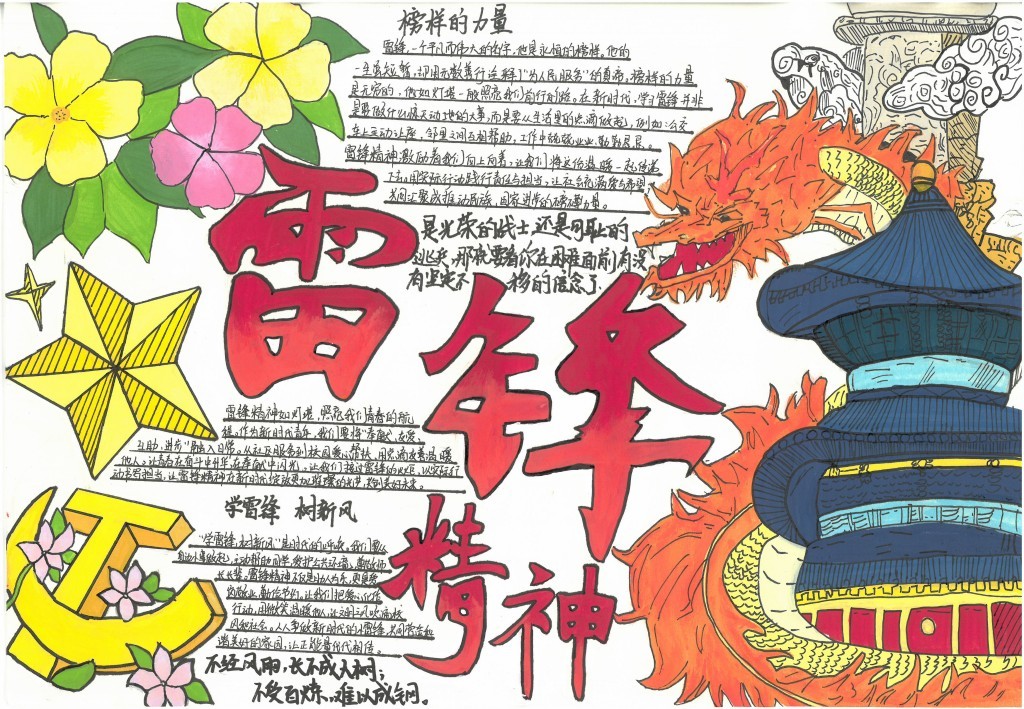 榜样的力量
雷锋,一个平凡而伟大的名字,他是永恒的榜样。他的
一生虽短暂,却用无数善行诠释了"为人民服务"的真谛。榜样的力量
是无穷的,他如灯塔一般照亮我们前行的路。在新时代,学习雷锋并非
是要做什么惊天动地的大事,而是要从生活里的点滴做起,例如:公交
车上主动让座,邻里之间互相帮助,工作中兢兢业业、勤勤恳恳。
雷锋精神激励着我们向上向善,让我们将这份温暖一起传递
下去,用实际行动践行责任与担当,让社会充满爱与希望,
共同汇聚成推动民族、国家进步的磅礴力量。
是光荣的战士还是可耻的
逃兵,那就要看你在困难面前有没
有坚定不移的信念了
雷锋精神
雷锋精神如灯塔,照亮我们青春的航
程。作为新时代青年,我们要将"奉献、友爱、
互助、进步"融入日常。从社区服务到校园帮扶,用点滴友善温暖
他人,让青春在奋斗中升华,在奉献中闪光。让我们接过雷锋的火炬,以实际行
动书写担当,让雷锋精神在新时代绽放更加璀璨的光芒,
学雷锋 树新风
"学雷锋,树新风"是时代的呼唤。我们要从
身边小事做起,主动帮助同学,爱护公共环境,尊敬师
长长辈。雷锋精神不仅是助人为乐,更是爱
岗敬业、勤俭节约。让我们把爱心化作
行动,用微笑温暖他人,让文明之风吹满校
园和社会。人人争做新时代的小雷锋,共同营造和
谐美好的家园,让正能量代代相传。
不经风雨,长不成大树;
不受百炼,难以成钢。